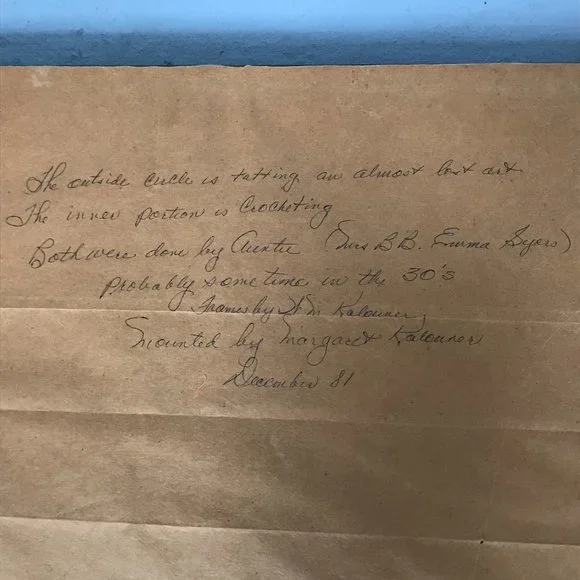 The outside circle is tatting an almost lost art
The inner portion is Crocheting
Both were done by Auntie (Mrs B.B. Emma Syers)
Probably sometime in the 30's
Frames by Kalouner
Mounted by Margaret Kalouner
December 81